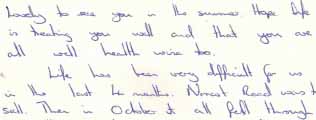 Lovely to see you in the summer. Hope life
is treating you well and that you are
all well health wise too.
Life has been very difficult for us
in the last 4 months. Road was to
sell. Then in October it all fell through